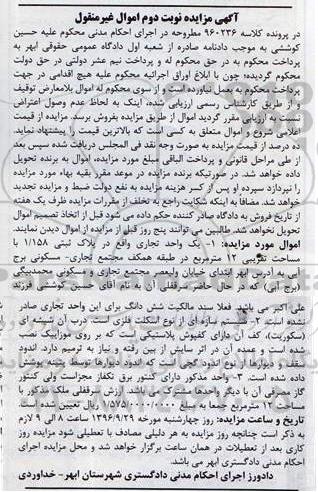 آگهی مزایده نوبت دوم اموال غیرمنقول
در پرونده کلاسه ۹۶۰۲۳۶ مطروحه در اجرای احکام مدنی محکوم علیه حسین
کوششی به موجب دادنامه صادره از شعبه اول دادگاه عمومی حقوقی ابهر به
پرداخت محکوم به در حق محکوم له و پرداخت نیم عشر دولتی در حق دولت
محکوم گردیده؛ چون با ابلاغ اوراق اجرائیه محکوم علیه هیچ اقدامی در جهت
پرداخت محکوم به بعمل نیاورده است و از سوی محکوم له اموال بلامعارض توقیف
و از طریق کارشناس رسمی ارزیابی شده، اینک به لحاظ عدم وصول اعتراض
نسبت به ارزیابی مقرر گردید اموال از طریق مزایده بفروش برسد. مزایده از قیمت
اعلامی شروع و اموال متعلق به کسی است که بالاترین قیمت را پیشنهاد نماید.
ده درصد از قیمت مزایده به صورت وجه نقد فی المجلس دریافت شده سپس بعد
از طی مراحل قانونی و پرداخت الباقی مبلغ مورد مزایده، اموال به برنده تحویل
داده خواهد شد. در صورتیکه برنده مزایده در موعد مقرر بقیه بهاء مورد مزایده
را نپردازد سپرده او پس از کسر هزینه مزایده به نفع دولت ضبط و مزایده تجدید
خواهد شد. مضافاً به اینکه شکایت راجع به تخلف از مقررات مزایده ظرف یک هفته
از تاریخ فروش به دادگاه صادر کننده حکم داده می شود قبل از اتخاذ تصمیم اموال
تحویل نخواهد شد. طالبین می توانند پنج روز قبل از مزایده از اموال دیدن نمایند.
اموال مورد مزایده: ۱- یک واحد تجاری واقع در پلاک ثبتی ۱/۱۵۸ با
مساحت تقریبی ۱۲ مترمربع در طبقه همکف مجتمع تجاری- مسکونی برج
آبی به آدرس ابهر ابتدای خیابان ولیعصر مجتمع تجاری و مسکونی محمدبیگی
(برج آبی) که در حال حاضر سرقفلی آن به نام آقای حسین کوششی فرزند
علی اکبر می باشد. فعلا سند مالکیت شش دانگ برای این واحد تجاری صادر
نشده است. ۲- سیستم سازه ای از نوع اسکلت فلزی است. درب آن شیشه ای
(سکوریت)، کف آن دارای کفپوش پلاستیکی است که بر روی موزاییک نصب
شده است و عمده آن در اثر سایش از بین رفته و نیاز به ترمیم دارد. اندود
سقف و دیوارها از نوع اندود گچی است که اندود دیوارها توسط پوشش
داده شده است. ۳- واحد مذکور دارای کنتور برق تکفاز مجزاست ولی کنتور
گاز مصرفی آن با دیگر واحدها مشترک می باشد. ارزش سرقفلی ملک مذکور با
مساحت ۱۲ مترمربع جمعا به مبلغ ریال تعیین شده است.
تاریخ و ساعت مزایده: روز چهارشنبه مورخه ۱۳۹۶/۹/۲۹ ساعت ۸ الی ۹ لازم
به ذکر است چنانچه روز مزایده به هر دلیلی مصادف با تعطیلی شود مزایده روز
کاری بعد از تعطیلات در همان ساعت برگزار خواهد شد و محل مزایده اجرای
احکام مدنی دادگستری ابهر می باشد.
دادورز اجرای احکام مدنی دادگستری شهرستان ابهر- خداوردی